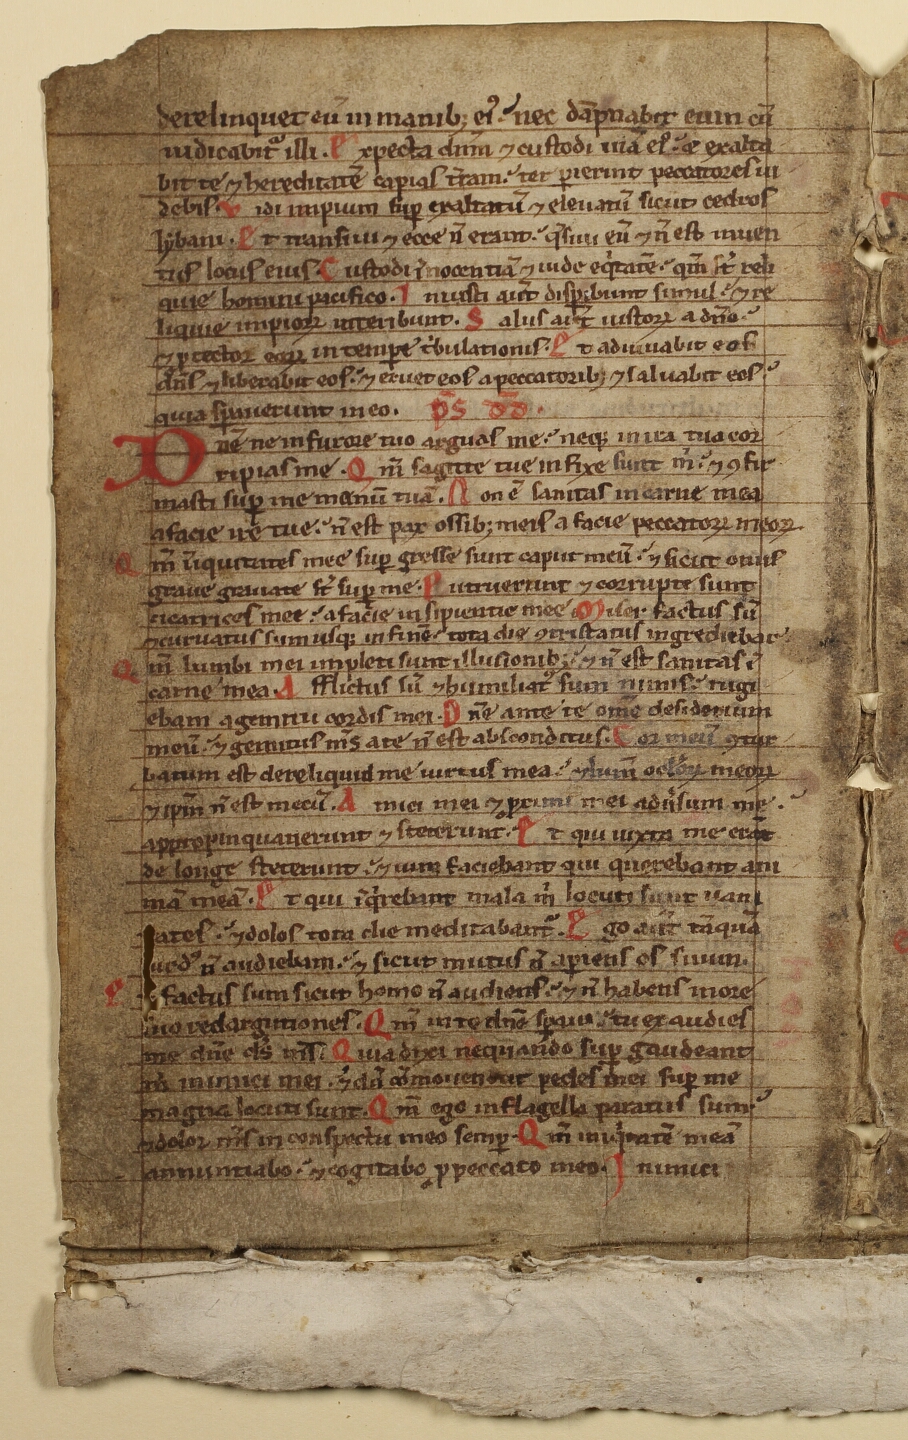 derelinquet eū in manib; eiꝰ nec dāpnabit eum cū
iudicabitᷓ illi. Expecta dnm̄ ⁊ custodi uiā eiꝰ ⁊ exalta
bit te ⁊ hereditatē capias t̄ram. ter perierint peccatores ui
debis. Vidi impium sup̄ exaltatū ⁊ eleuatū sicut cedros
lybani. Et transiui ⁊ ecce n̄ erant. q̄siui eū ⁊ n̄ est inuen
tus locus eius. Custodi īnocentiā ⁊ uide eq̄tatē. qm̄ st̄ reli
quie homini pacifico. Iniusti aut̄ disꝑibunt simul. ⁊ re
liquie impioꝝ interibunt. Salus aut̄ iustoꝝ a dn̄o.
⁊ ꝓtector eoꝝ in tempe t̄bulationis. Et adiuuabit eos
dn̄s ⁊ liberabit eos. ⁊ eruet eos a peccatorib; ⁊ saluabit eos.
quia sꝑauerunt in eo. p̄s dd̄.
Dn̄e ne in furore tuo arguas me. neq; in ira tua cor
ripias me. Qm̄ sagitte tue infixe sunt m̄. ⁊ ꝯfir
masti sup̄ me manū tuā. Non ē sanitas in carne mea
a facie ire tue. n̄ est pax ossib; meis a facie peccatoꝝ meoꝝ.
Qm̄ īiquitates mee sup̄gresse sunt caput meū. ⁊ sicut onus
graue grauate st̄ sup̄ me. Putruerunt ⁊ corrupte sunt
cicatrices mee. a facie insipientie mee. Miser factus sū
⁊ curuatus sum usq; in finē. tota die ꝯtristatus ingrediebar.
Qm̄ lumbi mei impleti sunt illusionib; ⁊ n̄ est sanitas ī
carne mea. Afflictus sū ⁊ humiliatꝰ sum nimis. rugi
ebam a gemitu cordis mei. Dn̄e ante te om̄e desiderium
meū. ⁊ gemitus m̄s a te n̄ est absconditus. Cor meū ꝯtur
batum est dereliquid me uirtus mea. ⁊ lum̄ ocl̄oꝝ meoꝝ
⁊ ipm̄ n̄ est mecū. Amici mei ⁊ ꝓximi mei adūsum me.
appropinquauerunt ⁊ steterunt. Et qui iuxta me erāt
de longe steterunt. ⁊ uim faciebant qui querebant ani
mā meā. Et qui īq̄rebant mala m̄ locuti sunt uani
tates. ⁊ dolos tota die meditabantᷓ. Ego aut̄ tāquā
surdꝰ n̄ audiebam. ⁊ sicut mutus n̄ aperiens os suum.
Et factus sum sicut homo n̄ audiens. ⁊ n̄ habens in ore
suo redargutiones. Qm̄ in te dn̄e spaui. tu exaudies
me dn̄e ds̄ ms̄. Quia dixi nequando sup̄ gaudeant
m̄ inimici mei. ⁊ dū cōmouentur pedes mei sup̄ me
magna locuti sunt. Qm̄ ego in flagella paratus sum.
⁊ dolor m̄s in conspectu meo semp̄. Qm̄ iniq̇tatē meā
annuntiabo. ⁊ cogitabo ꝓ peccato meo. Inimici